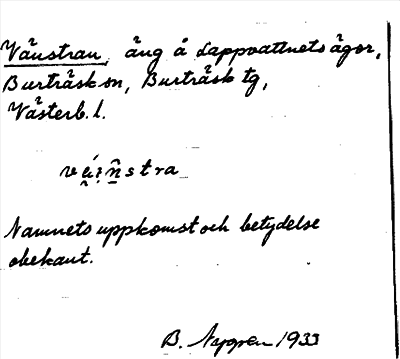 Vänstran, äng å Lappvattnets ägor,
Burträsk sn, Burträsk tg,
Västerb. l.
Namnets uppkomst och betydelse
obekant.
B. Nygren 1933